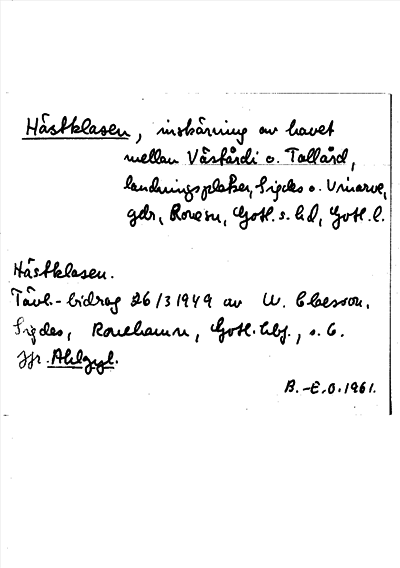 Hästklasen, inskärning av havet
mellan Västårdi o. Tallård,
landningsplatser, Sigdes o. Uvinarve,
gdr, Rone sn, Gotl. s. hd, Gotl. l.
Hästklasen.
Tävl.-bidrag 26/3 1949 av W. Claesson,
Sigdes, Ronehamn, Gotl. hbg., s. 6.
Jfr. Ahlgyl.
B.-E.O. 1961.